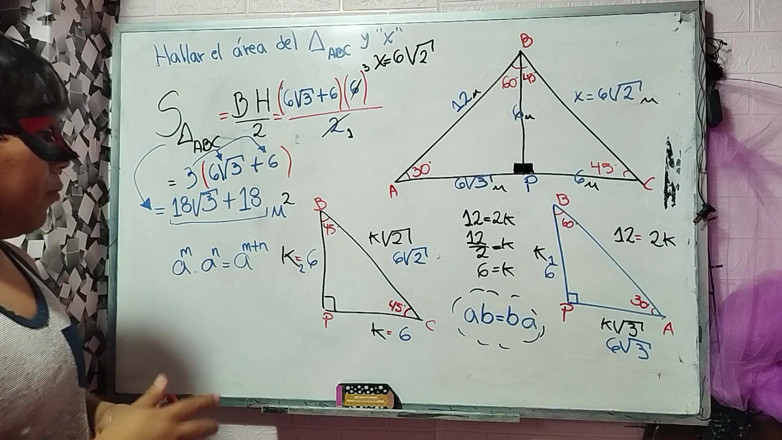 Hallar el área del △ABC y "x"
x=6√2
S△ABC = BH/2 = (6√3+6)(6)³/2₁
= 3(6√3+6)
= 18√3+18 m²
aᵐ.aⁿ=aᵐ⁺ⁿ
B
60° 45°
12m
6m
x=6√2 m
30°
45°
A
6√3 m
P
6m
C
B
45°
k=6
k√2
6√2
45°
P
k=6
C
12=2k
12/2=k
6=k
ab=ba
B
60°
k
6
12=2k
30°
P
k√3
6√3
A